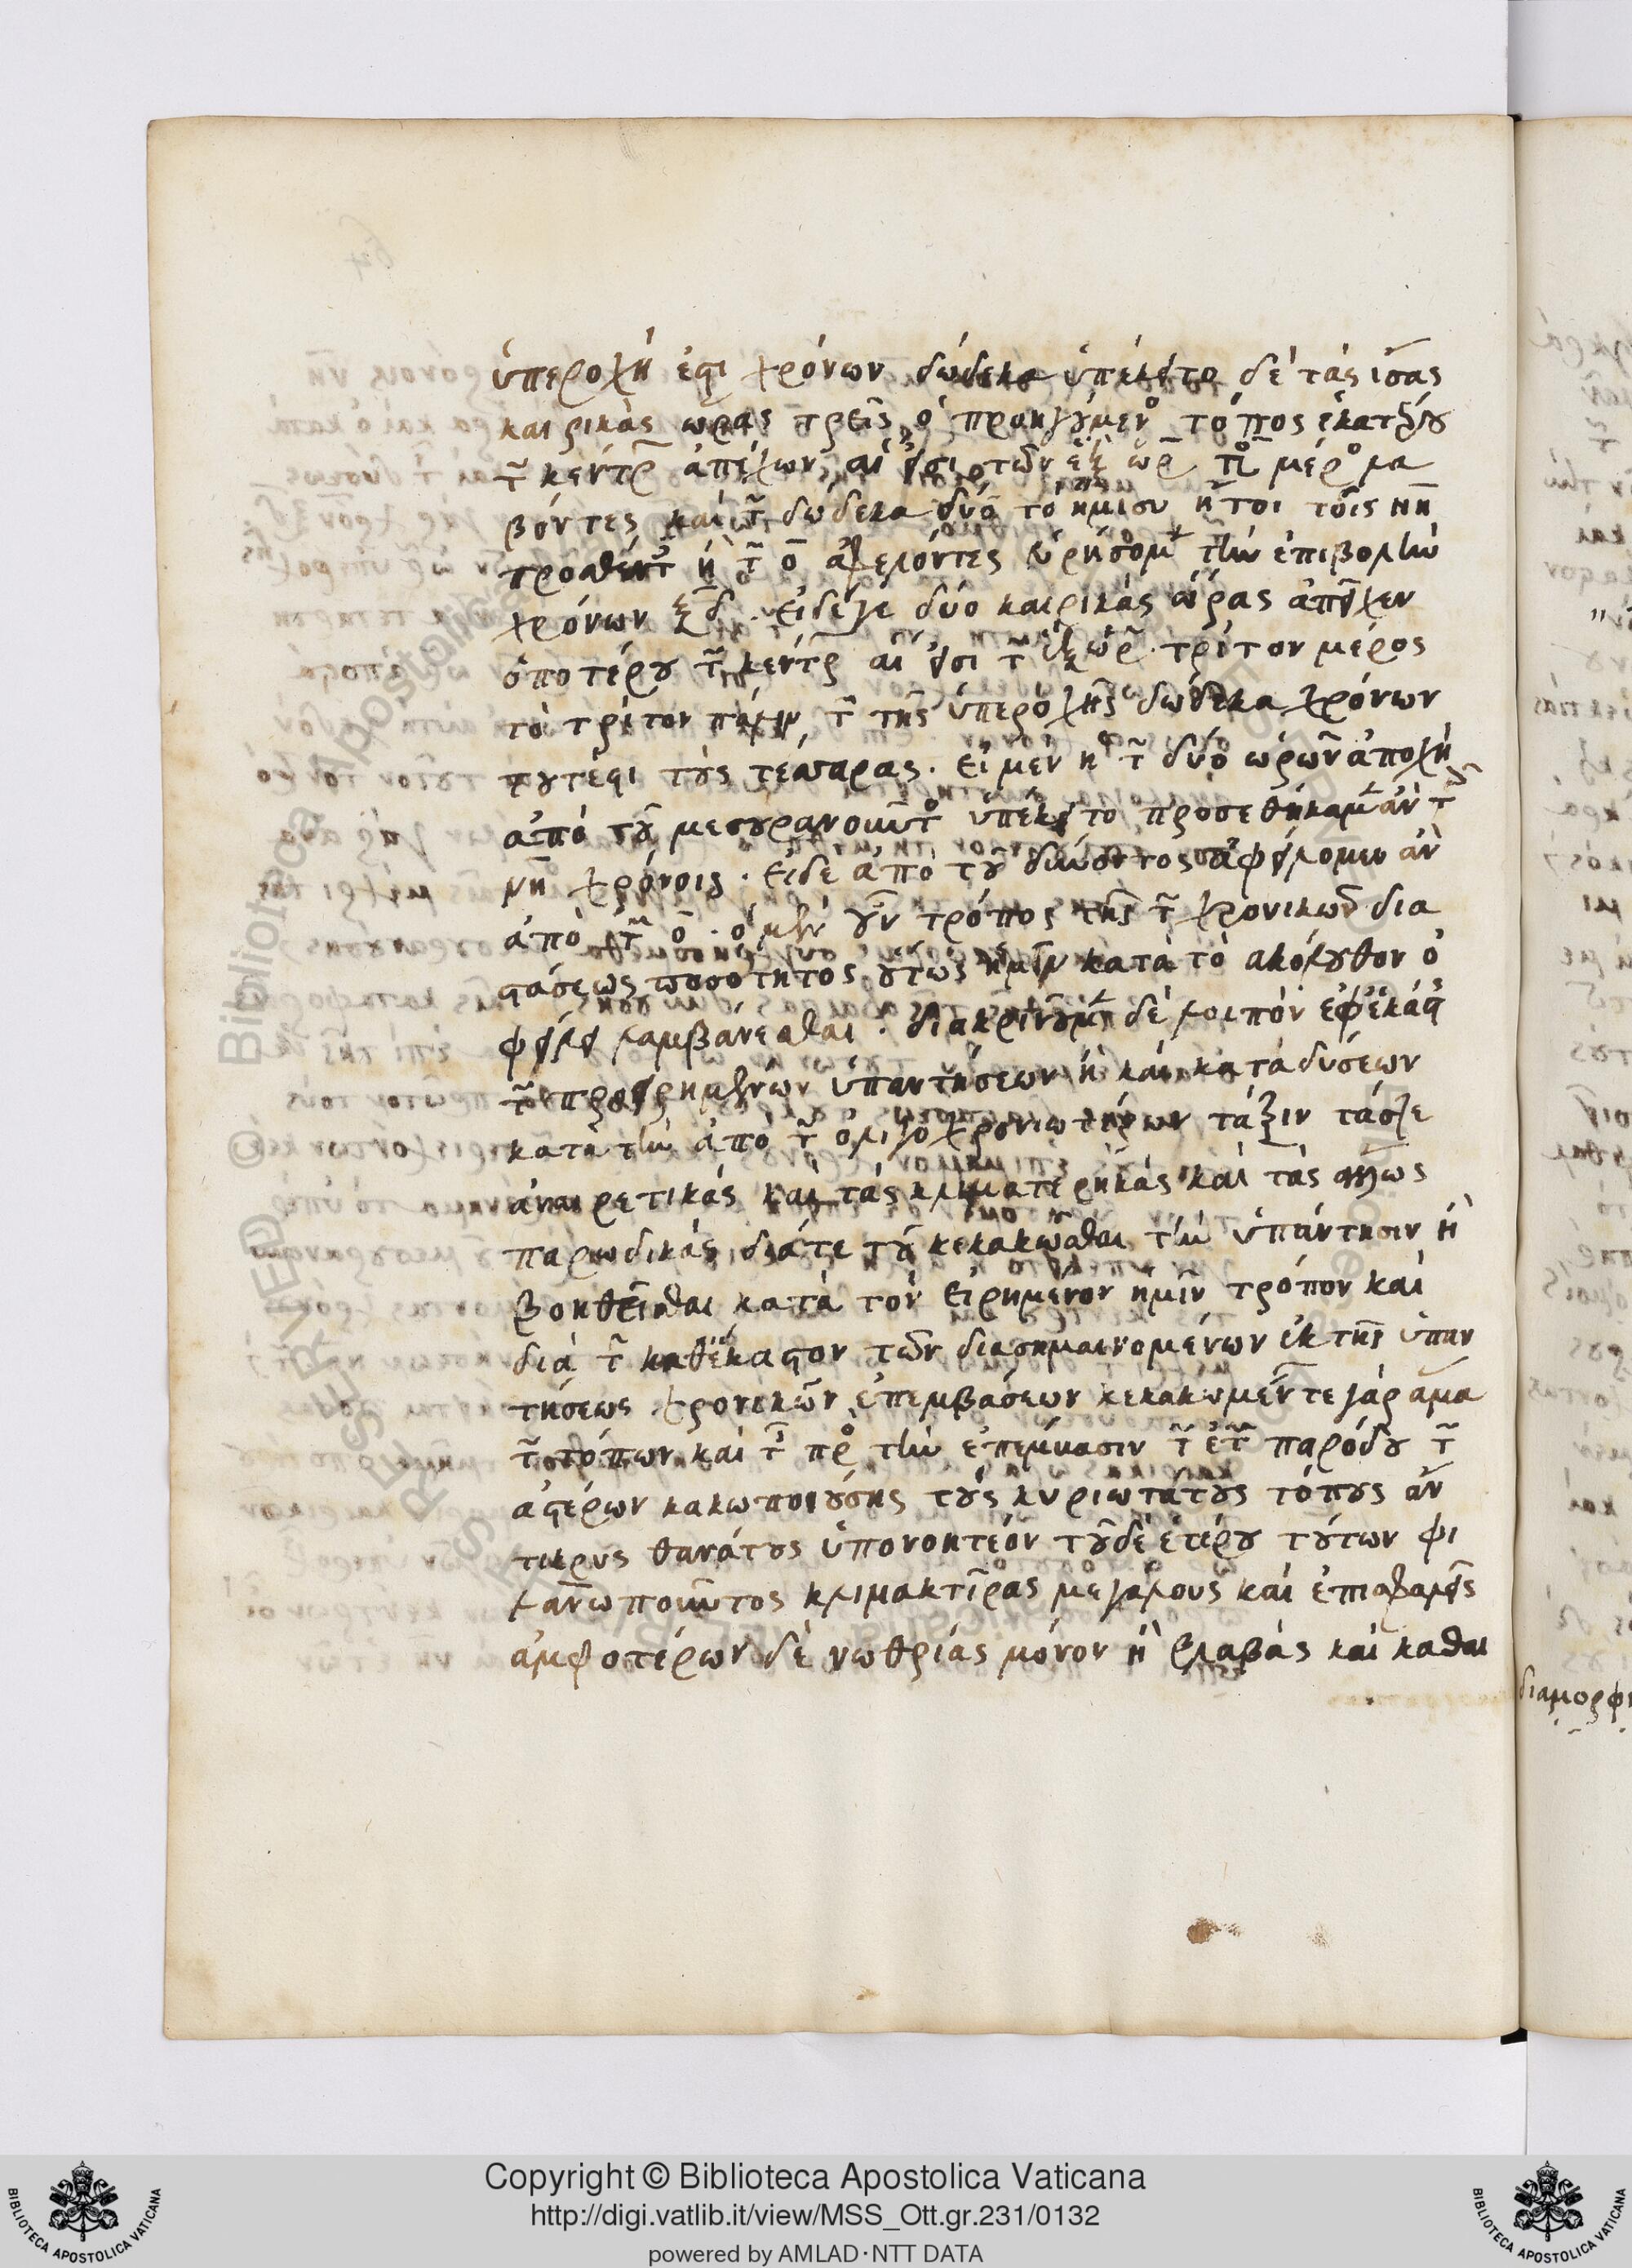 ὑπεροχή ἐστι χρόνων δώδεκα ὑπέκειτο δὲ τὰς ἴσας
καιρικὰς ὥρας τρεῖς ὁ προηγούμενος τόπος ἑκατέρου
τῶν κέντρων ἀπέχων, αἵ εἰσι τῶν ἓξ ὡρῶν μέρος λα
βόντες καὶ τῶν δώδεκα τὸ ἥμισυ ἤτοι τοῖς νη
προσθέντες ἢ τῶν ο ἀφελόντες εὑρήσομεν τὴν ἐπιβολὴν
χρόνων ξδ. εἰ δέ γε δύο καιρικὰς ὥρας ἀπεῖχεν
ὁποτέρου τῶν κέντρων αἵ εἰσι τῶν ἓξ ὡρῶν τρίτον μέρος
τὸ τρίτον πάλιν τῶν τῆς ὑπεροχῆς δώδεκα χρόνων
τουτέστι τοὺς τέσσαρας. εἰ μὲν ἡ τῶν δύο ὡρῶν ἀποχὴ
ἀπὸ τοῦ μεσουρανοῦντος ὑπέκειτο προσεθήκαμεν ἂν τοῖς
νη χρόνοις. εἰ δὲ ἀπὸ τοῦ δύνοντος ἀφείλομεν ἂν
ἀπὸ τῶν ο. ὁ μὲν οὖν τρόπος τῆς τῶν χρονικῶν δια
στάσεως ποσότητος οὕτως ἡμῖν κατὰ τὸ ἀκόλουθον ὀ
φείλει λαμβάνεσθαι. διακρινοῦμεν δὲ λοιπὸν ἐφ' ἑκάστης
τῶν προειρημένων ὑπαντήσεων ἢ καὶ καταδύσεων
κατὰ τὴν ἀπὸ τῶν ὀλιγοχρονιωτέρων τάξιν τάς γε
ἀναιρετικὰς καὶ τὰς κλιματηρικὰς καὶ τὰς ἄλλως
παρωδικὰς διά τε τοῦ κεκακῶσθαι τὴν ὑπάντησιν ἢ
βοηθεῖσθαι κατὰ τὸν εἰρημένον ἡμῖν τρόπον καὶ
διὰ τῶν καθ' ἕκαστον τῶν διασημαινομένων ἐκ τῆς ὑπαν
τήσεως χρονικῶν ἐπεμβάσεων κεκακωμένων τε γὰρ ἅμα
τῶν τόπων καὶ τῆς πρὸς τὴν ἐπέμβασιν τῶν ἐτῶν παρόδου τῶν
ἀστέρων κακωποιούσης τοὺς κυριωτάτους τόπους ἄν
τικρυς θανάτους ὑπονοητέον τοῦ δὲ ἑτέρου τούτων φι
λανωποιοῦντος κλιμακτῆρας μεγάλους καὶ ἐπισφαλεῖς
ἀμφοτέρων δὲ νωθρίας μόνον ἢ βλαβὰς καὶ καθαι
διαμορφι
Copyright © Biblioteca Apostolica Vaticana
http://digi.vatlib.it/view/MSS_Ott.gr.231/0132
powered by AMLAD·NTT DATA
BIBLIOTECA APOSTOLICA VATICANA
BIBLIOTECA APOSTOLICA VATICANA